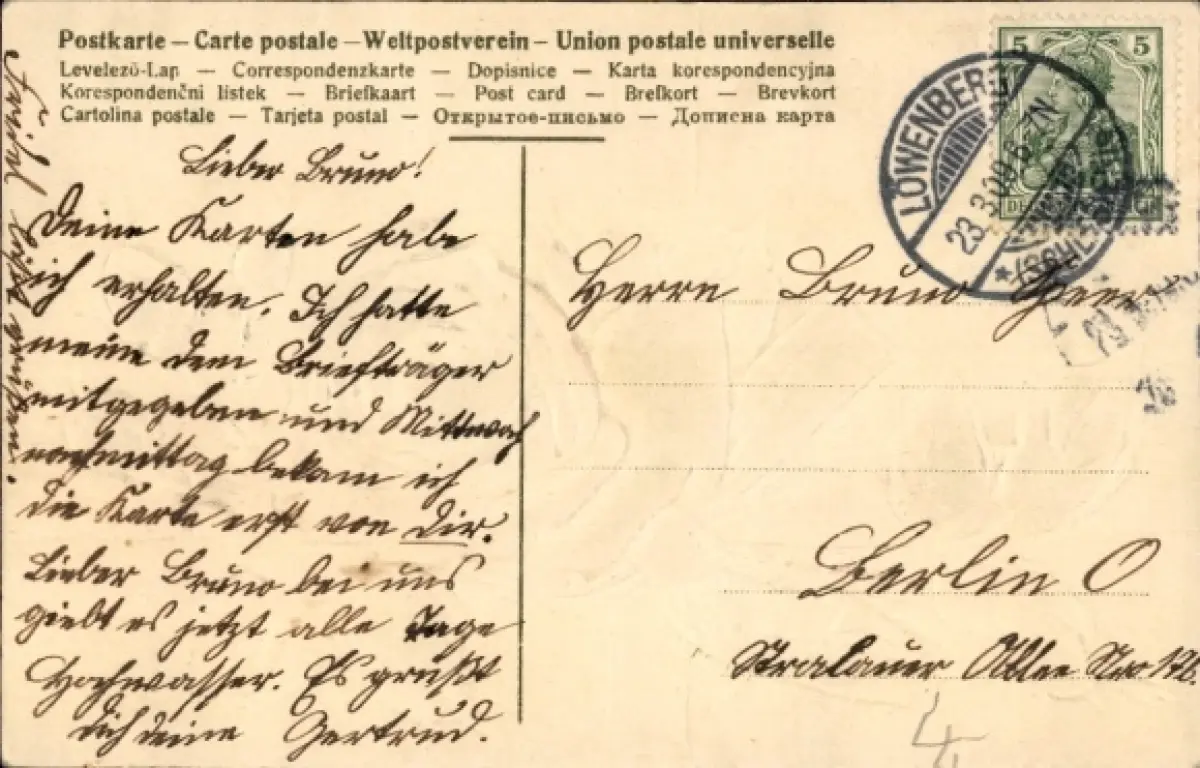 Postkarte – Carte postale – Weltpostverein – Union postale universelle
Levelező-Lap — Correspondenzkarte — Dopisnice — Karta korespondencyjna
Korespondenční listek — Briefkaart — Post card — Brefkort — Brevkort
Cartolina postale — Tarjeta postal — Открытое-письмо — Дописна карта
Lieber Bruno!
Deine Karten habe
ich erhalten. Ich hatte
meine dem Briefträger
mitgegeben und Mittwoch
nachmittag bekam ich
die Karte erst von Dir.
Lieber Bruno bei uns
giebt es jetzt alle Tage
Hochwasser. Es grüßt
Dich deine Gertrud.
läßt grüßen.
5 5
LÖWENBERG
23.3.09. 6-7N
Herrn Bruno
Berlin O
Stralauer Allee Nro
4